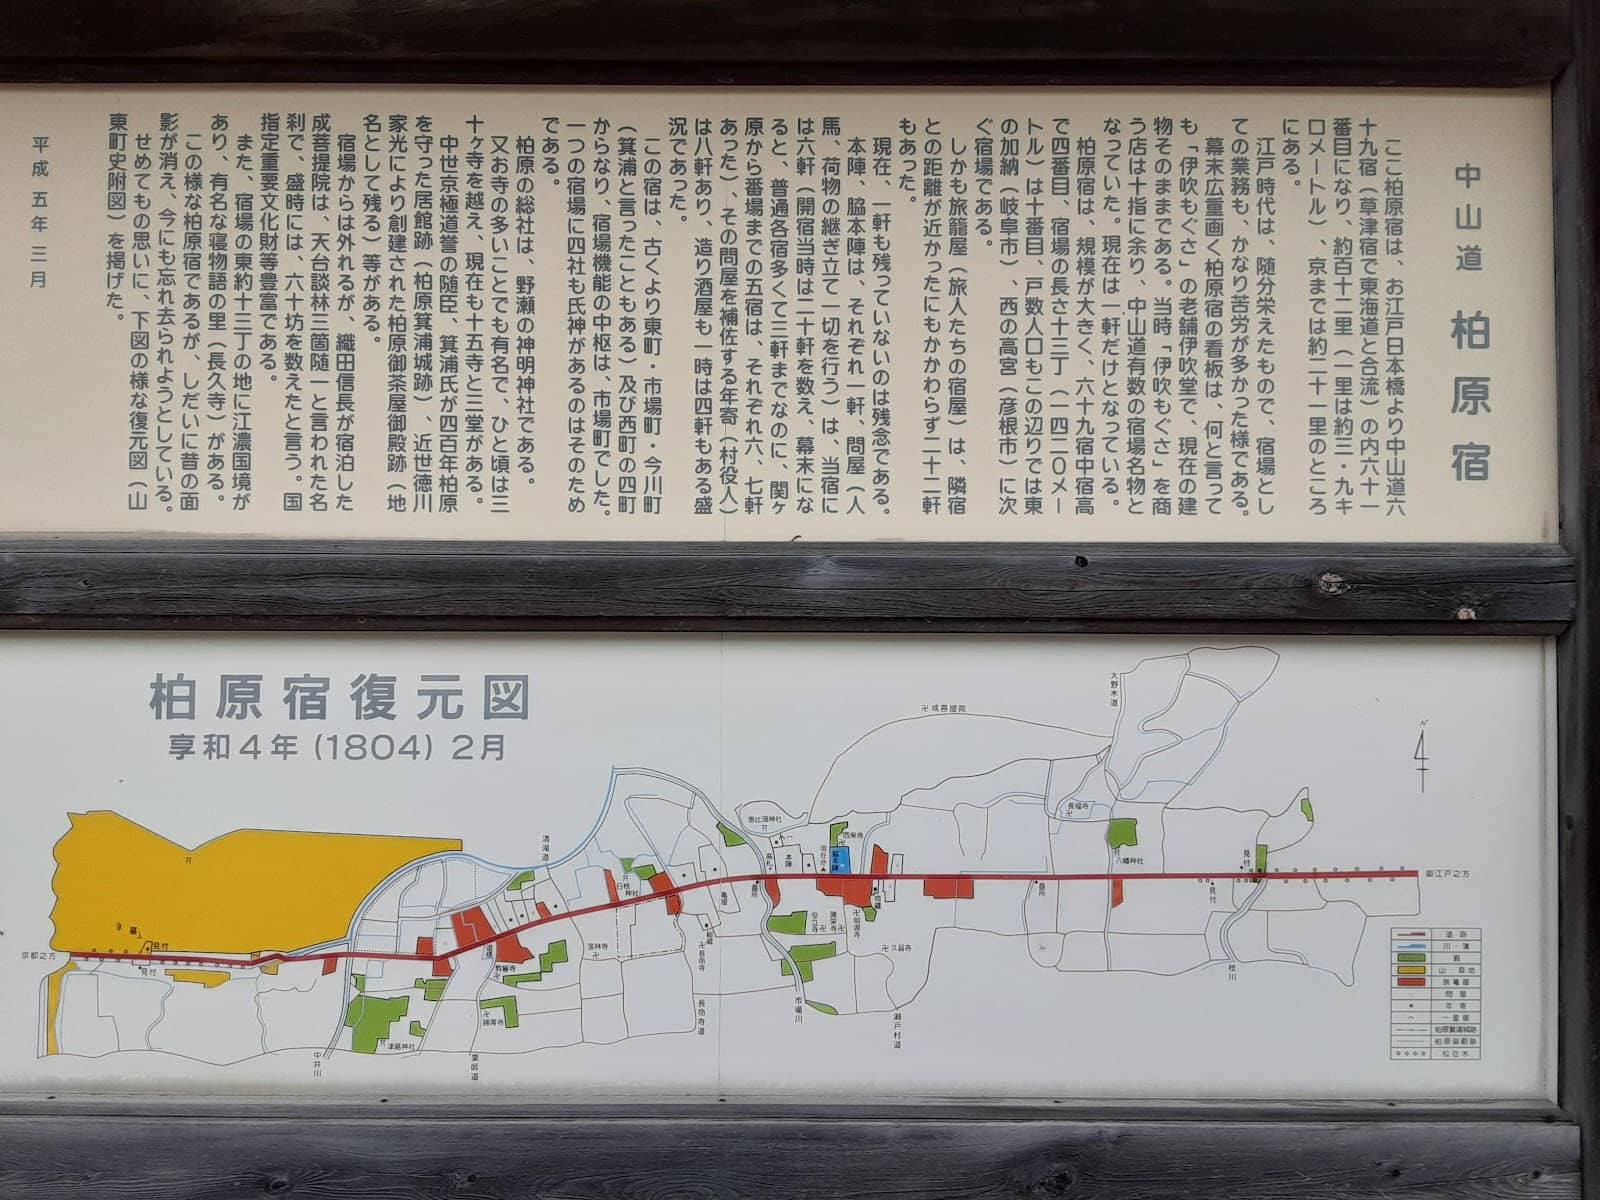 中山道 柏原宿
ここ柏原宿は、お江戸日本橋より中山道六
十九宿（草津宿で東海道と合流）の内六十一
番目になり、約百十二里（一里は約三・九キ
ロメートル）、京までは約二十一里のところ
にある。
江戸時代は、随分栄えたもので、宿場とし
ての業務も、かなり苦労が多かった様である。
幕末広重画く柏原宿の看板は、何と言って
も「伊吹もぐさ」の老舗伊吹堂で、現在の建
物そのままである。当時「伊吹もぐさ」を商
う店は十指に余り、中山道有数の宿場名物と
なっていた。現在は一軒だけとなっている。
柏原宿は、規模が大きく、六十九宿中宿高
で四番目、宿場の長さ十三丁（一四二〇メー
トル）は十番目、戸数人口もこの辺りでは東
の加納（岐阜市）、西の高宮（彦根市）に次
ぐ宿場である。
しかも旅籠屋（旅人たちの宿屋）は、隣宿
との距離が近かったにもかかわらず二十二軒
もあった。
現在、一軒も残っていないのは残念である。
本陣、脇本陣は、それぞれ一軒、問屋（人
馬、荷物の継ぎ立て一切を行う）は、当宿に
は六軒（開宿当時は二十軒を数え、幕末にな
ると、普通各宿多くて三軒までなのに、関ヶ
原から番場までの五宿は、それぞれ六、七軒
あった）、その問屋を補佐する年寄（村役人）
は八軒あり、造り酒屋も一時は四軒もある盛
況であった。
この宿は、古くより東町・市場町・今川町
（箕浦と言ったこともある）及び西町の四町
からなり、宿場機能の中枢は、市場町でした。
一つの宿場に四社も氏神があるのはそのため
である。
柏原の総社は、野瀬の神明神社である。
又お寺の多いことでも有名で、ひと頃は三
十ヶ寺を越え、現在も十五寺と三堂がある。
中世京極道誉の随臣、箕浦氏が四百年柏原
を守った居館跡（柏原箕浦城跡）、近世徳川
家光により創建された柏原御茶屋御殿跡（地
名として残る）等がある。
宿場からは外れるが、織田信長が宿泊した
成菩提院は、天台談林三箇随一と言われた名
刹で、盛時には、六十坊を数えたと言う。国
指定重要文化財等豊富である。
また、宿場の東約十三丁の地に江濃国境が
あり、有名な寝物語の里（長久寺）がある。
この様な柏原宿であるが、しだいに昔の面
影が消え、今にも忘れ去られようとしている。
せめてもの思いに、下図の様な復元図（山
東町史附図）を掲げた。
平成五年三月
柏原宿復元図
享和4年（1804）2月
N
大野木道
卍成菩提院
清滝道
恵比須神社
高札
本陣
現在地
脇本陣
西栄寺
長福寺
八幡神社
見付
御江戸之方
日枝神社
亀屋
番所
荷蔵
番所
見付
京都之方
墓
見付
見付
薬師道
中井川
津島神社
長命寺
長命寺道
市場川
瀬戸村道
久昌寺
明源寺
勝専寺
枝川
道路
川・溝
藪
山・草地
旅籠屋
問屋
年寄
一里塚
柏原箕浦城跡
柏原御殿跡
松並木